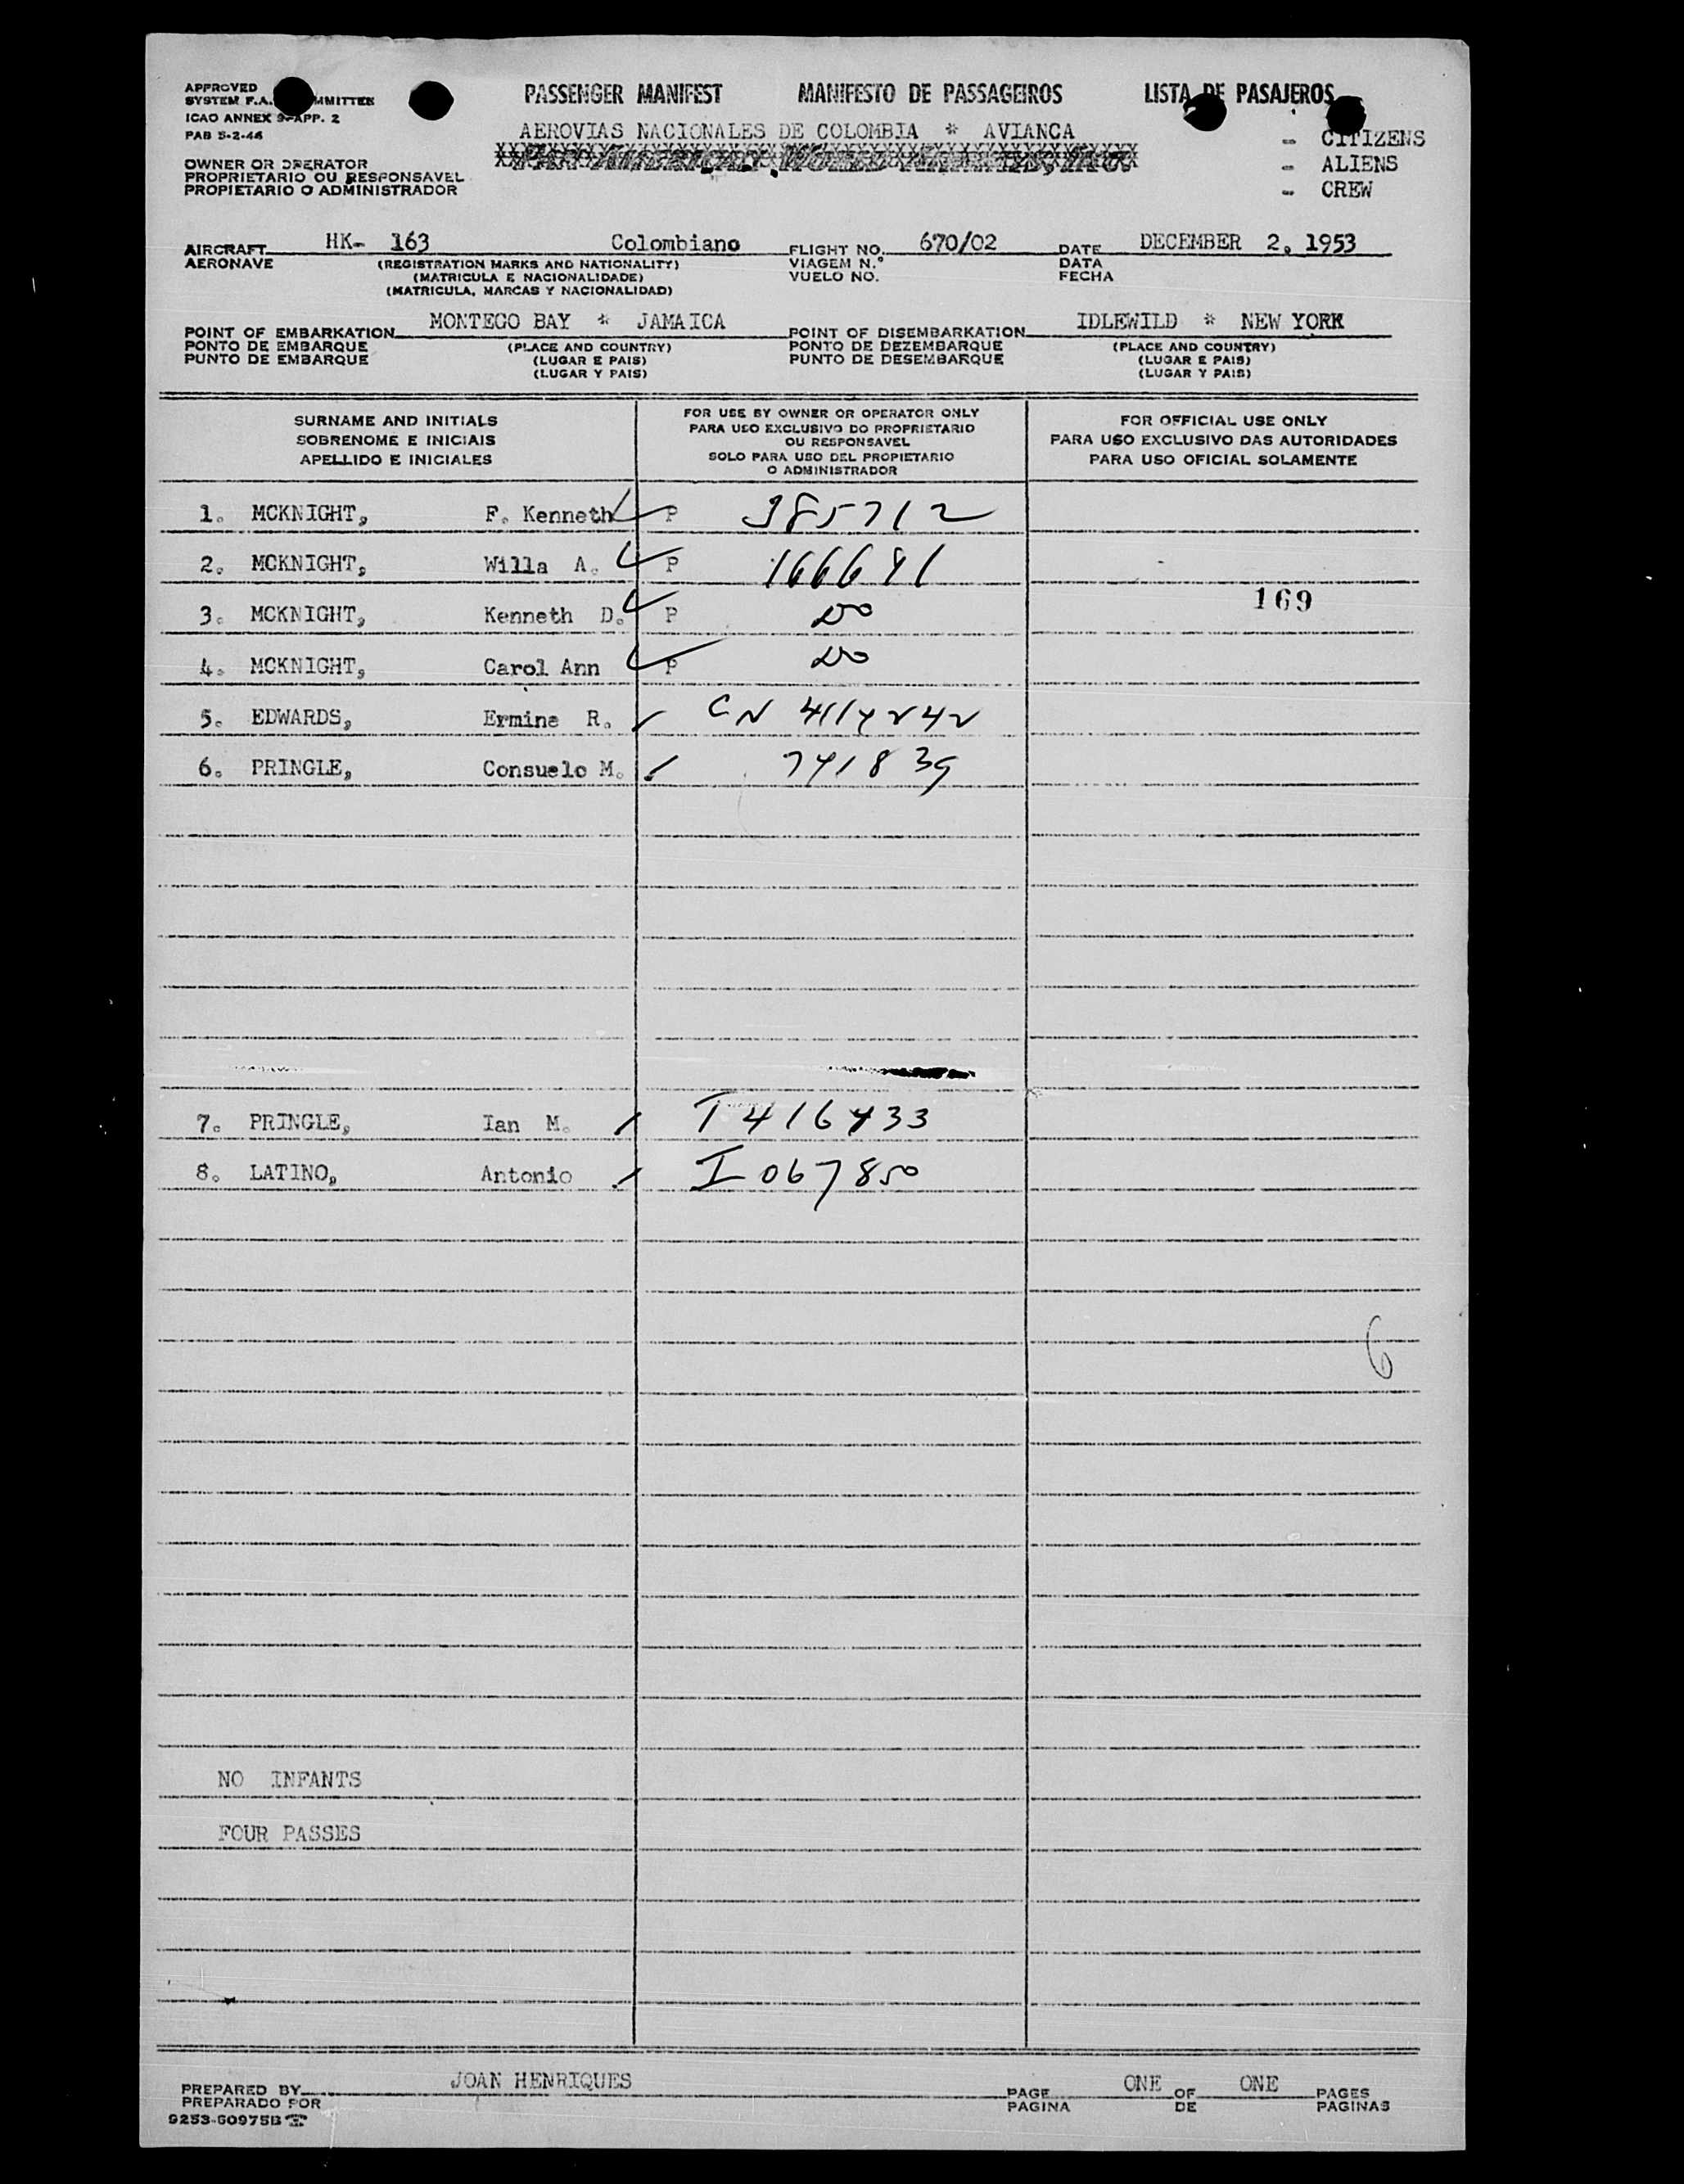 APPROVED
SYSTEM F.A. MMITTEE
ICAO ANNEX 9-APP. 2
PAB 5-2-46
PASSENGER MANIFEST MANIFESTO DE PASSAGEIROS LISTA DE PASAJEROS
AEROVIAS NACIONALES DE COLOMBIA * AVIANCA
- CITIZENS
- ALIENS
- CREW
OWNER OR OPERATOR
PROPRIETARIO OU RESPONSAVEL
PROPIETARIO O ADMINISTRADOR
AIRCRAFT HK- 163 Colombiano FLIGHT NO. 670/02 DATE DECEMBER 2, 1953
AERONAVE (REGISTRATION MARKS AND NATIONALITY) VIAGEM N.º DATA
(MATRICULA E NACIONALIDADE) VUELO NO. FECHA
(MATRICULA, MARCAS Y NACIONALIDAD)
POINT OF EMBARKATION MONTEGO BAY * JAMAICA POINT OF DISEMBARKATION IDLEWILD * NEW YORK
PONTO DE EMBARQUE (PLACE AND COUNTRY) PONTO DE DEZEMBARQUE (PLACE AND COUNTRY)
PUNTO DE EMBARQUE (LUGAR E PAIS) PUNTO DE DESEMBARQUE (LUGAR E PAIS)
(LUGAR Y PAIS) (LUGAR Y PAIS)
SURNAME AND INITIALS
SOBRENOME E INICIAIS
APELLIDO E INICIALES
FOR USE BY OWNER OR OPERATOR ONLY
PARA USO EXCLUSIVO DO PROPRIETARIO
OU RESPONSAVEL
SOLO PARA USO DEL PROPIETARIO
O ADMINISTRADOR
FOR OFFICIAL USE ONLY
PARA USO EXCLUSIVO DAS AUTORIDADES
PARA USO OFICIAL SOLAMENTE
1. MCKNIGHT, F. Kenneth P 385712
2. MCKNIGHT, Willa A. P 166691
3. MCKNIGHT, Kenneth D. P Do
169
4. MCKNIGHT, Carol Ann P Do
5. EDWARDS, Ermine R. CN 4114242
6. PRINGLE, Consuelo M. 741839
7. PRINGLE, Ian M. I 416433
8. LATINO, Antonio I 067850
6
NO INFANTS
FOUR PASSES
PREPARED BY JOAN HENRIQUES PAGE ONE OF ONE PAGES
PREPARADO POR PAGINA DE PAGINAS
9253-60975B